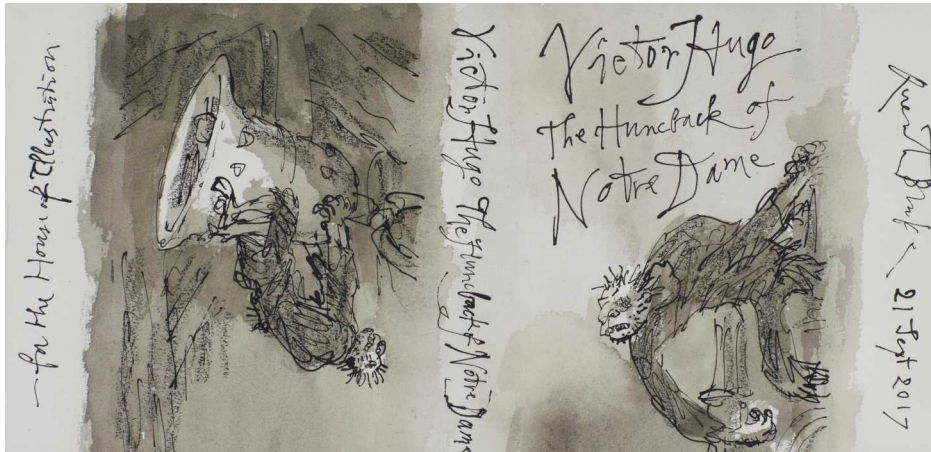 — for the House of Illustration
Victor Hugo The Huncback of Notre Dame
Victor Hugo
The Huncback of
Notre Dame
Quentin Blake — 21 Sept 2017